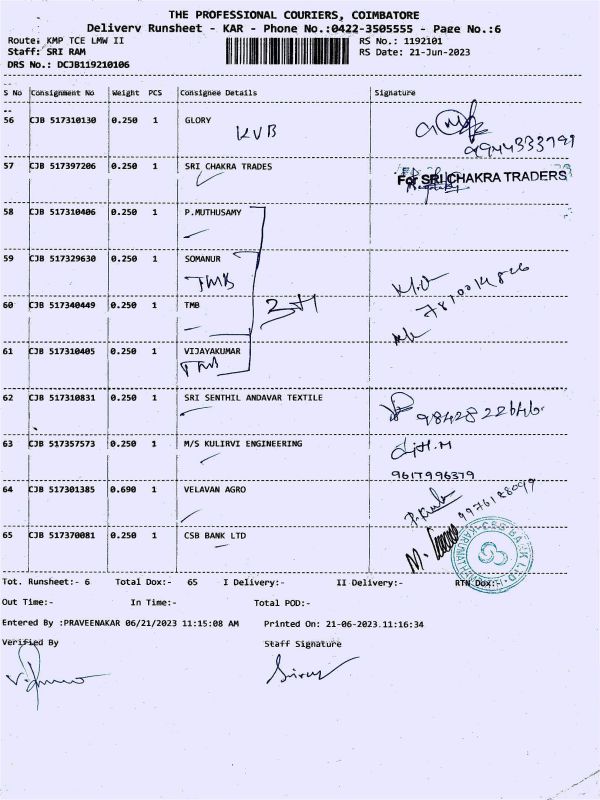 THE PROFESSIONAL COURIERS, COIMBATORE
Delivery Runsheet - KAR - Phone No.:0422-3505555 - Page No.:6
Route: KMP TCE LMW II RS No.: 1192101
Staff: SRI RAM RS Date: 21-Jun-2023
DRS No.: DCJB119210106
S No Consignment No Weight PCS Consignee Details Signature
56 CJB 517310130 0.250 1 GLORY
KVB
9944333791
57 CJB 517397206 0.250 1 SRI CHAKRA TRADES
For SRI CHAKRA TRADERS
58 CJB 517310406 0.250 1 P.MUTHUSAMY
59 CJB 517329630 0.250 1 SOMANUR
TMB
60 CJB 517340449 0.250 1 TMB
61 CJB 517310405 0.250 1 VIJAYAKUMAR
TMB
62 CJB 517310831 0.250 1 SRI SENTHIL ANDAVAR TEXTILE
9842822646
63 CJB 517357573 0.250 1 M/S KULIRVI ENGINEERING
9617996379
64 CJB 517301385 0.690 1 VELAVAN AGRO
9976128099
65 CJB 517370081 0.250 1 CSB BANK LTD
CSB BANK LTD
Tot. Runsheet:- 6 Total Dox:- 65 I Delivery:- II Delivery:- RTN Dox:-
Out Time:- In Time:- Total POD:-
Entered By :PRAVEENAKAR 06/21/2023 11:15:08 AM Printed On: 21-06-2023.11:16:34
Verified By Staff Signature